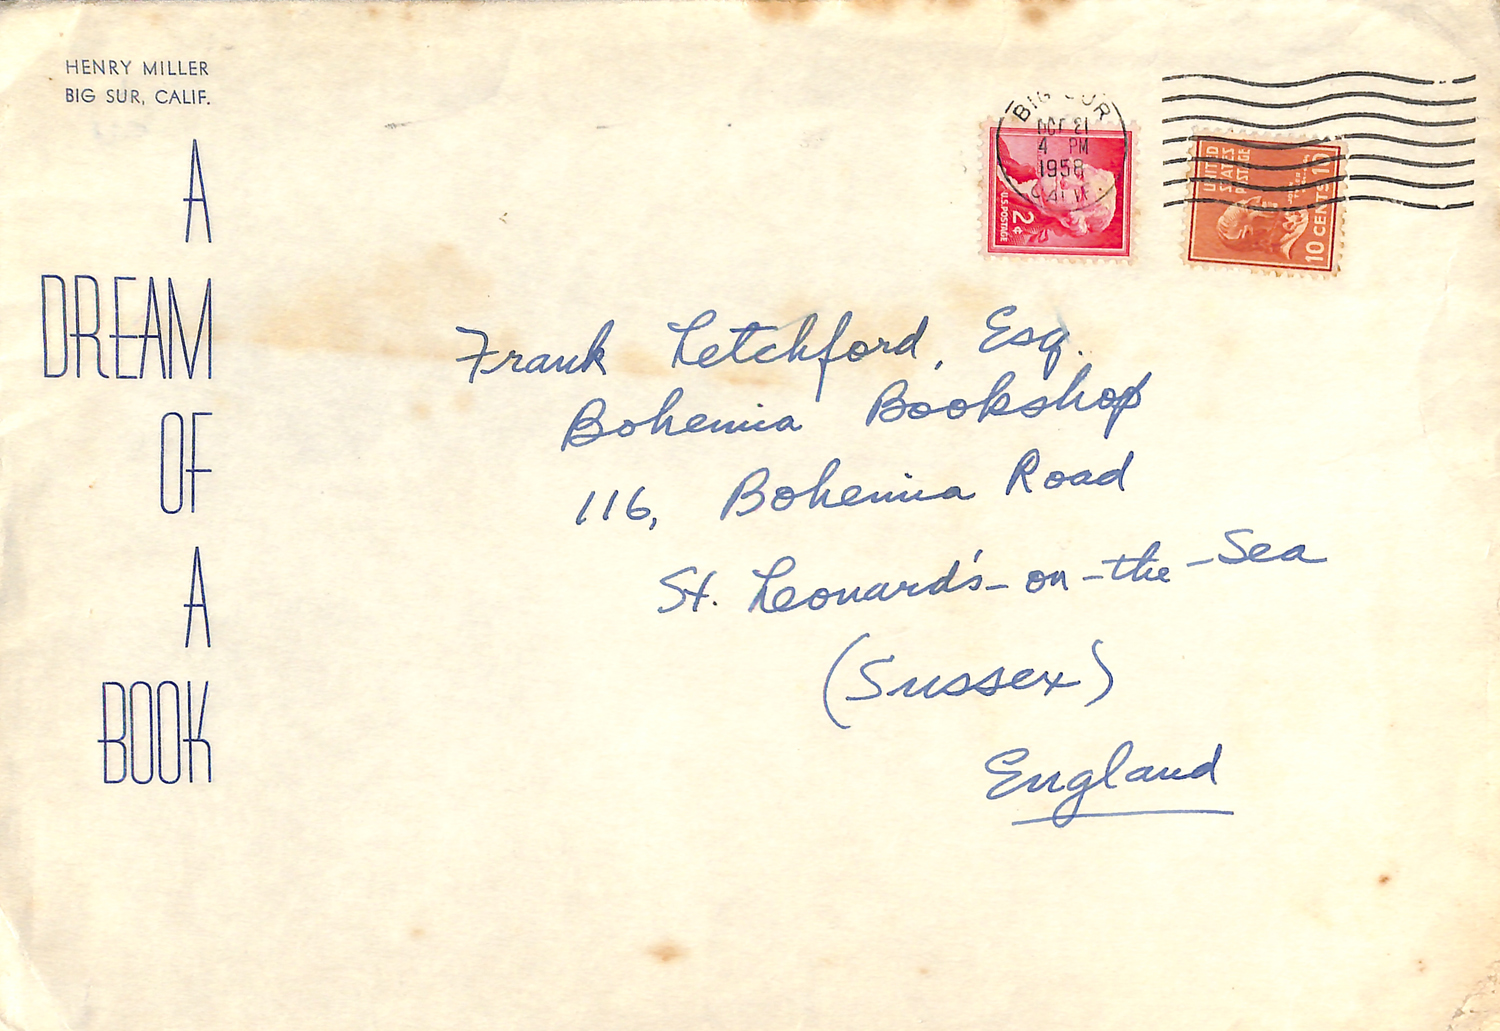 HENRY MILLER
BIG SUR, CALIF.
A
DREAM
OF
A
BOOK
BIG SUR
OCT 21
4 PM
1958
CALIF.
2¢
U.S. POSTAGE
UNITED
STATES
POSTAGE
JOHN
TYLER
10 CENTS 10
Frank Letchford, Esq.
Bohemia Bookshop
116, Bohemia Road
St. Leonard's-on-the-Sea
(Sussex)
England